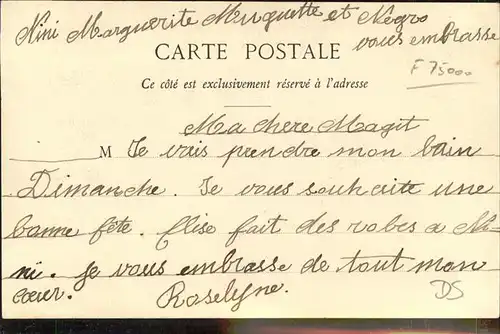 Nini Marguerite Muguette et Négro
vous embrasse
CARTE POSTALE
F 75000
Ce côté est exclusivement réservé à l'adresse
Ma chere Magit
M Je vais prendre mon bain
Dimanche. Je vous souhaite une
bonne fête. Elise fait des robes a Mi-
ni. je vous embrasse de tout mon
cœur. Roselyne.
DS